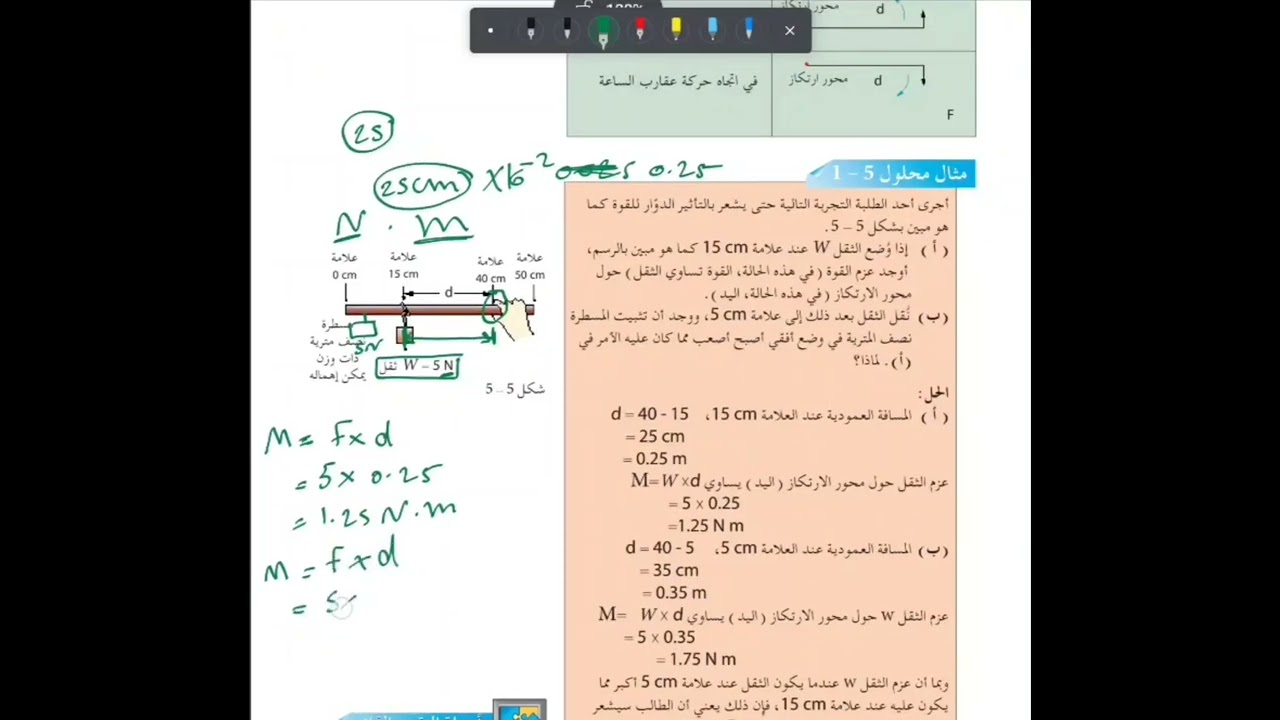 محور ارتكاز
d
في اتجاه حركة عقارب الساعة
محور ارتكاز
d
F
25
25cm × 10⁻² 0.25
N . m
مثال محلول 5 – 1
أجرى أحد الطلبة التجربة التالية حتى يشعر بالتأثير الدوّار للقوة كما
هو مبين بشكل 5 – 5.
( أ ) إذا وُضع الثقل W عند علامة 15 cm كما هو مبين بالرسم،
أوجد عزم القوة ( في هذه الحالة، القوة تساوي الثقل ) حول
محور الارتكاز ( في هذه الحالة، اليد ).
(ب) نُقل الثقل بعد ذلك إلى علامة 5 cm، ووجد أن تثبيت المسطرة
نصف المترية في وضع أفقي أصبح أصعب مما كان عليه الأمر في
(أ) . لماذا؟
الحل :
( أ ) المسافة العمودية عند العلامة 15 cm، d = 40 - 15
= 25 cm
= 0.25 m
عزم الثقل حول محور الارتكاز ( اليد ) يساوي M= W ×d
= 5 × 0.25
=1.25 N m
(ب) المسافة العمودية عند العلامة 5 cm، d = 40 - 5
= 35 cm
= 0.35 m
عزم الثقل W حول محور الارتكاز ( اليد ) يساوي M= W × d
= 5 × 0.35
= 1.75 N m
وبما أن عزم الثقل W عندما يكون الثقل عند علامة 5 cm أكبر مما
يكون عليه عند علامة 15 cm، فإن ذلك يعني أن الطالب سيشعر
علامة 0 cm
علامة 15 cm
علامة 40 cm
علامة 50 cm
d
مسطرة
نصف مترية
ذات وزن
يمكن إهماله
5N
ثقل W – 5 N
شكل 5 – 5
M = F × d
= 5 × 0.25
= 1.25 N.m
M = F × d
= 5×